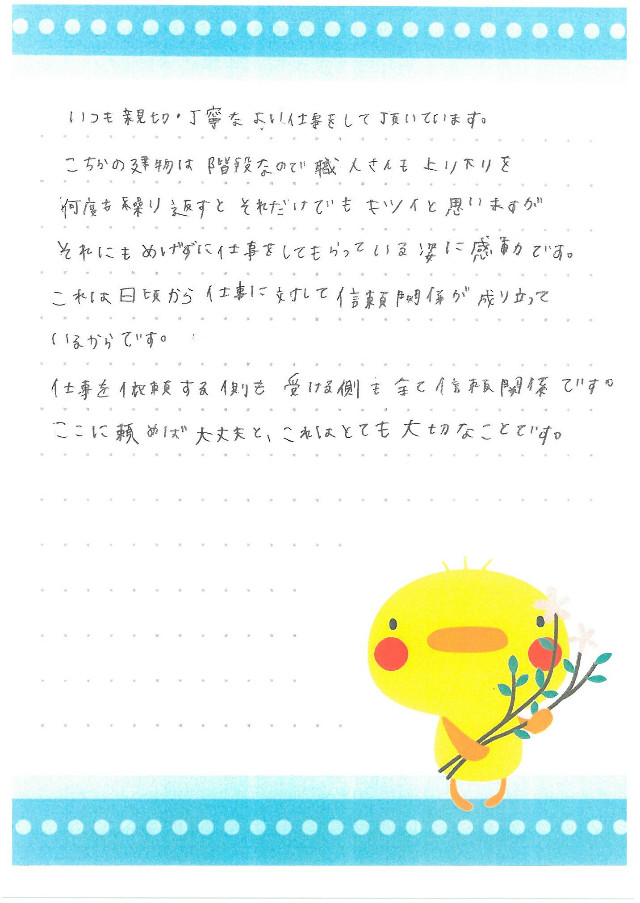 いつも親切・丁寧なよい仕事をして頂いています。
こちらの建物は階段なので職人さんも上り下りを
何度も繰り返すとそれだけでもキツイと思いますが
それにもめげずに仕事をしてもらっている姿に感動です。
これは日頃から仕事に対して信頼関係が成り立って
いるからです。
仕事を依頼する側も受ける側も全て信頼関係です。
ここに頼めば大丈夫と、これはとても大切なことです。